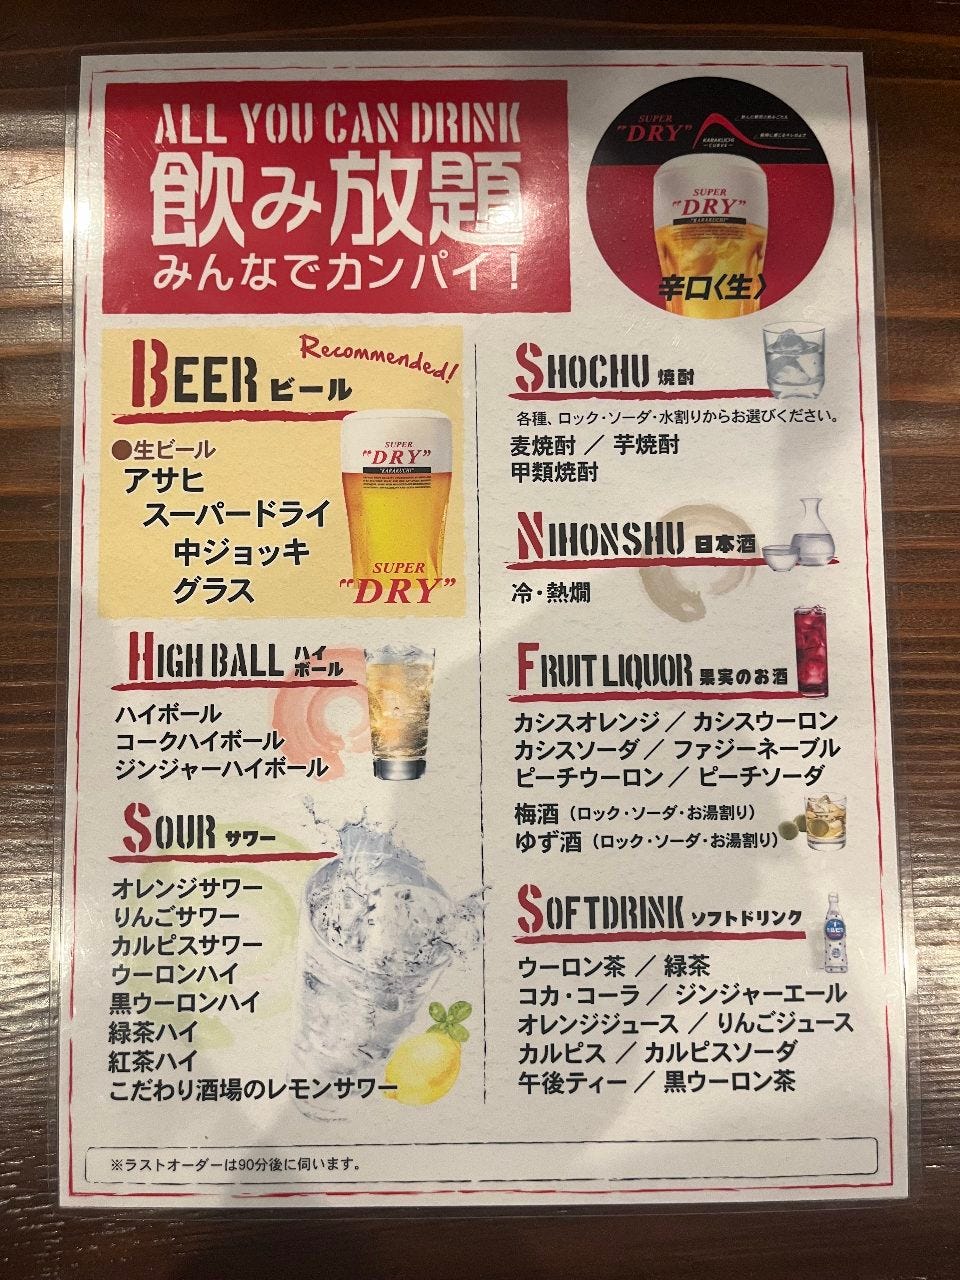 ALL YOU CAN DRINK
飲み放題
みんなでカンパイ！
SUPER
"DRY"
KARAKUCHI
CURVE
SUPER
"DRY"
"KARAKUCHI"
辛口〈生〉
BEER ビール
Recommended!
●生ビール
アサヒ
スーパードライ
中ジョッキ
グラス
SUPER
"DRY"
"KARAKUCHI"
SUPER
"DRY"
HIGH BALL ハイボール
ハイボール
コークハイボール
ジンジャーハイボール
SOUR サワー
オレンジサワー
りんごサワー
カルピスサワー
ウーロンハイ
黒ウーロンハイ
緑茶ハイ
紅茶ハイ
こだわり酒場のレモンサワー
SHOCHU 焼酎
各種、ロック・ソーダ・水割りからお選びください。
麦焼酎 ／ 芋焼酎
甲類焼酎
NIHONSHU 日本酒
冷・熱燗
FRUIT LIQUOR 果実のお酒
カシスオレンジ ／ カシスウーロン
カシスソーダ ／ ファジーネーブル
ピーチウーロン ／ ピーチソーダ
梅酒（ロック・ソーダ・お湯割り）
ゆず酒（ロック・ソーダ・お湯割り）
SOFTDRINK ソフトドリンク
ウーロン茶 ／ 緑茶
コカ・コーラ ／ ジンジャーエール
オレンジジュース ／ りんごジュース
カルピス ／ カルピスソーダ
午後ティー ／ 黒ウーロン茶
※ラストオーダーは90分後に伺います。